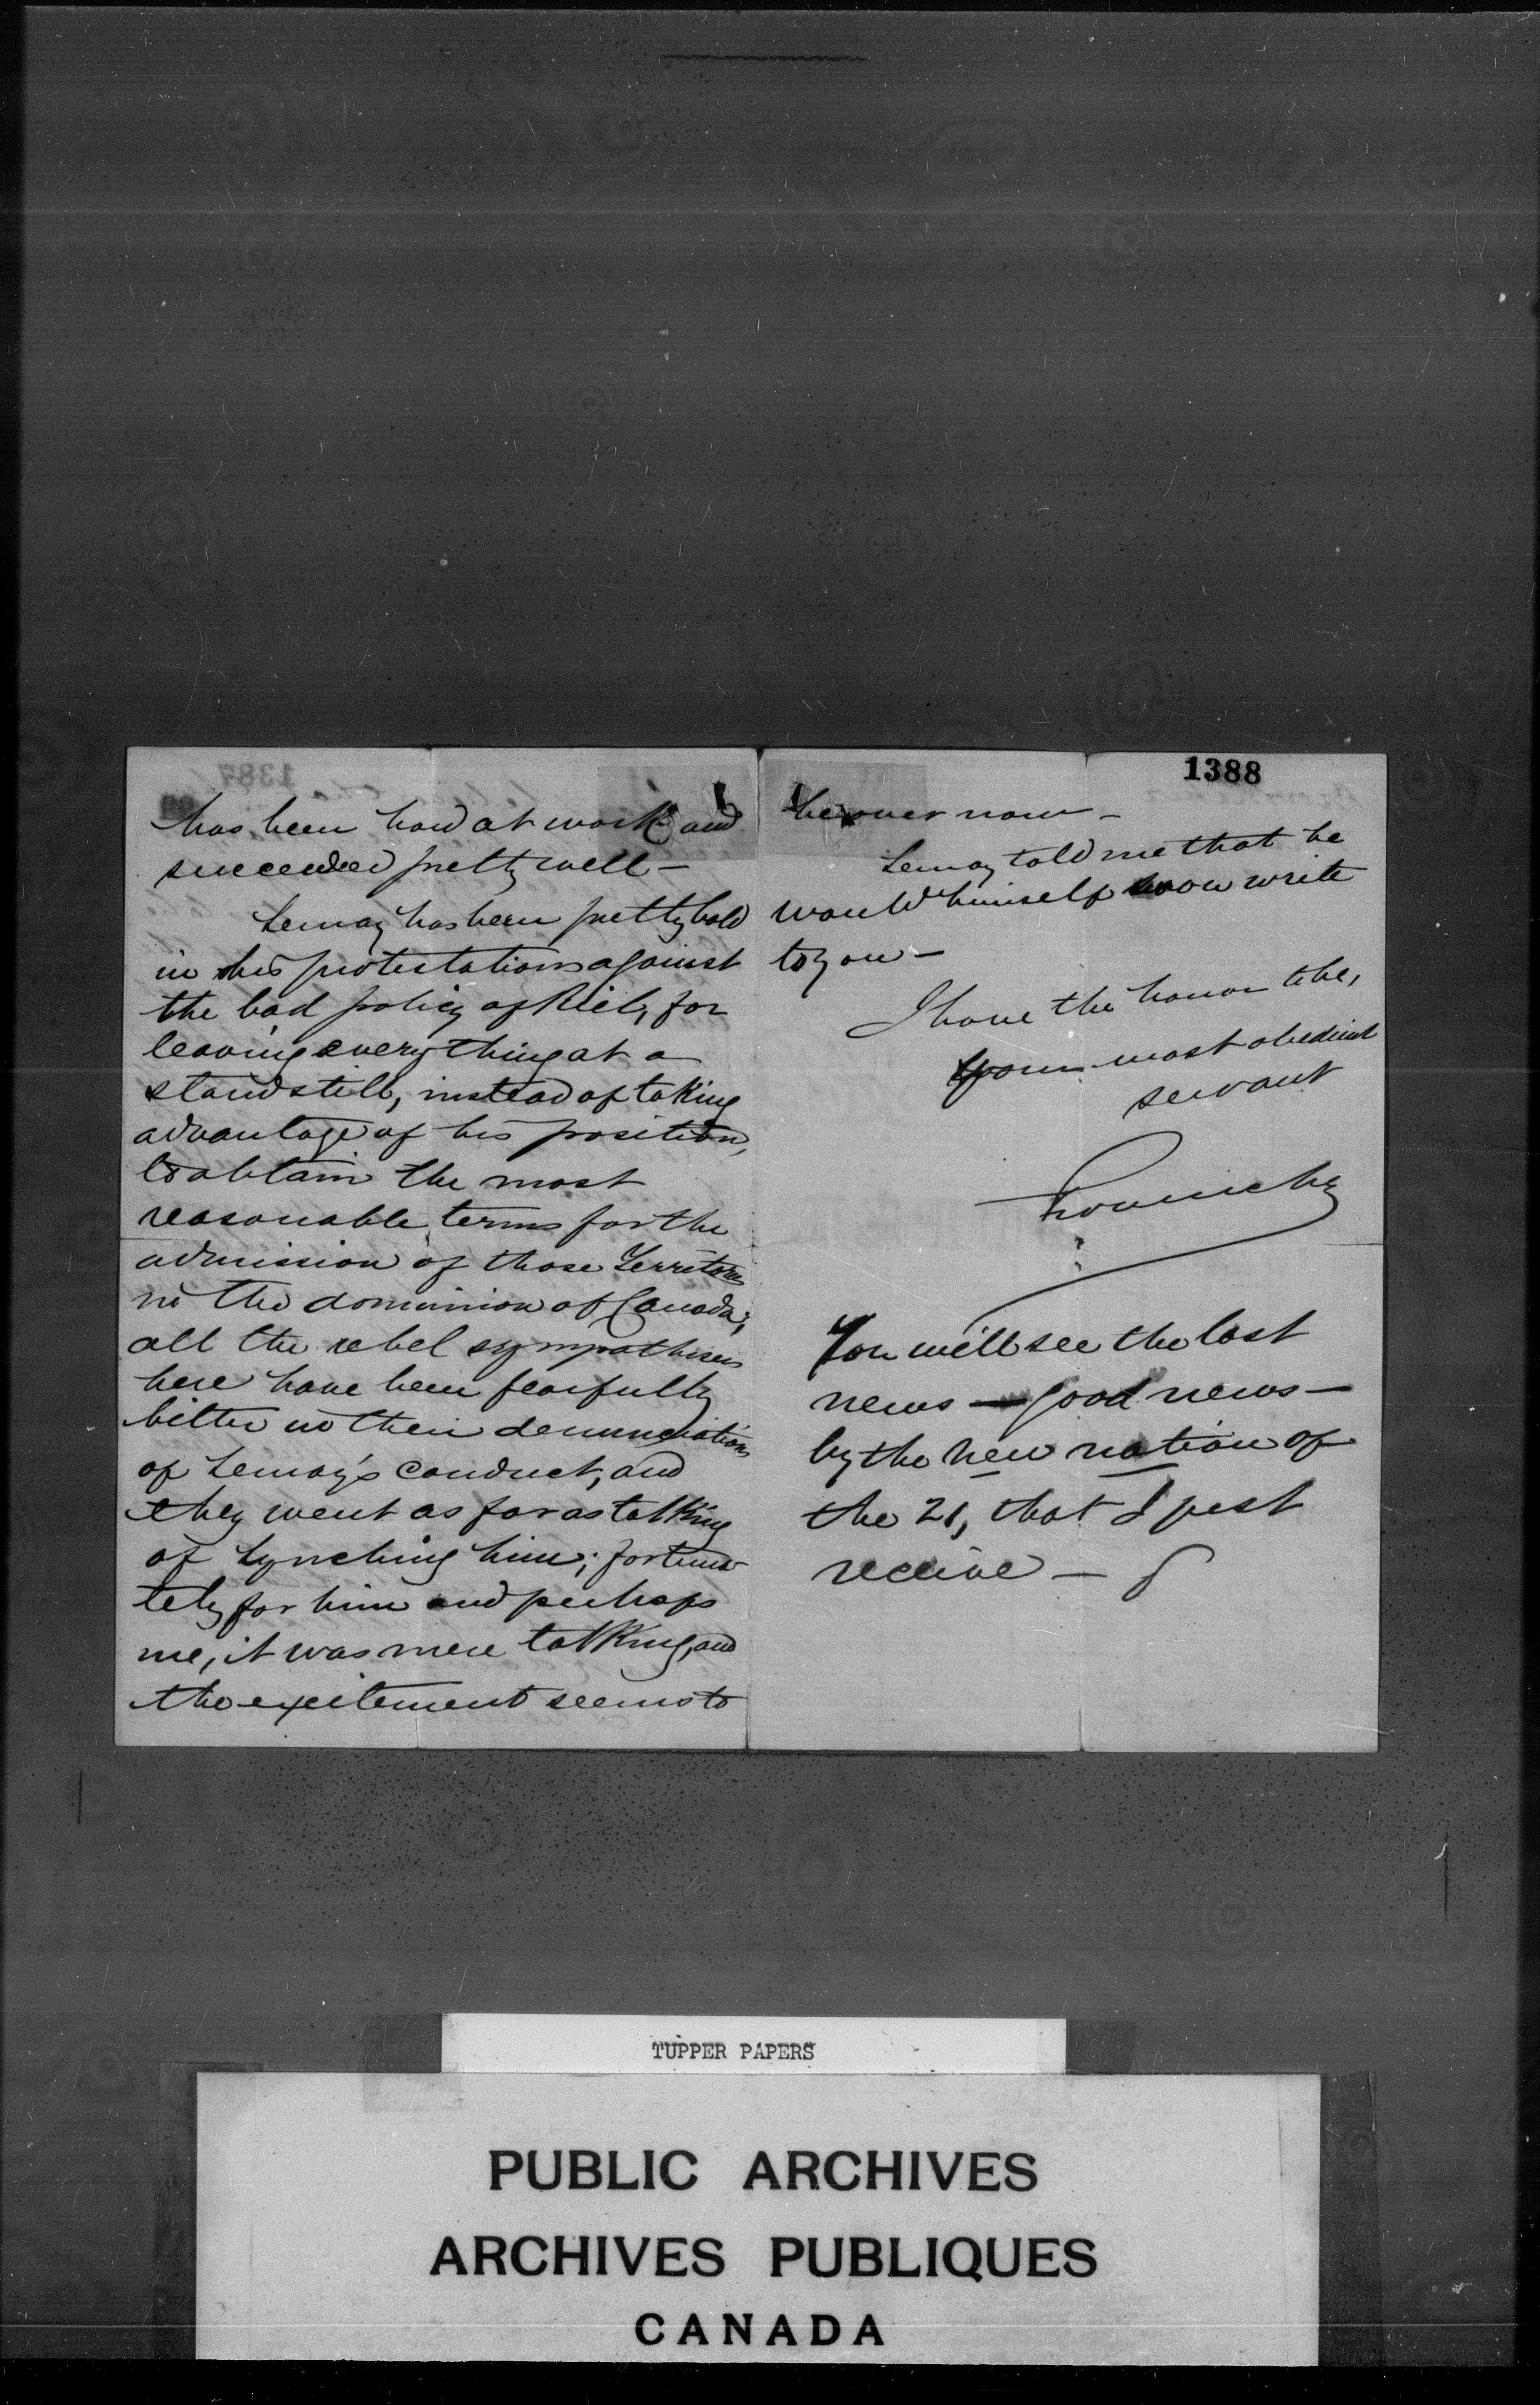 has been hard at work and
succeeded pretty well —
Lemay has been pretty bold
in his protestations against
the bad policy of Riel, for
leaving everything at a
standstill, instead of taking
advantage of his position,
to obtain the most
reasonable terms for the
admission of those Territories
in the dominion of Canada;
all the rebel sympathisers
here have been fearfully
bitter in their denunciations
of Lemay's conduct, and
they went as far as talking
of lynching him; fortuna
tely for him and perhaps
me, it was mere talking, and
the excitement seems to
1388
be over now —
Lemay told me that he
would himself soon write
to you —
I have the honor to be,
your most obedient
servant
Provencher
You will see the last
news — good news —
by the New nation of
the 21, that I just
receive —
TUPPER PAPERS
PUBLIC ARCHIVES
ARCHIVES PUBLIQUES
CANADA